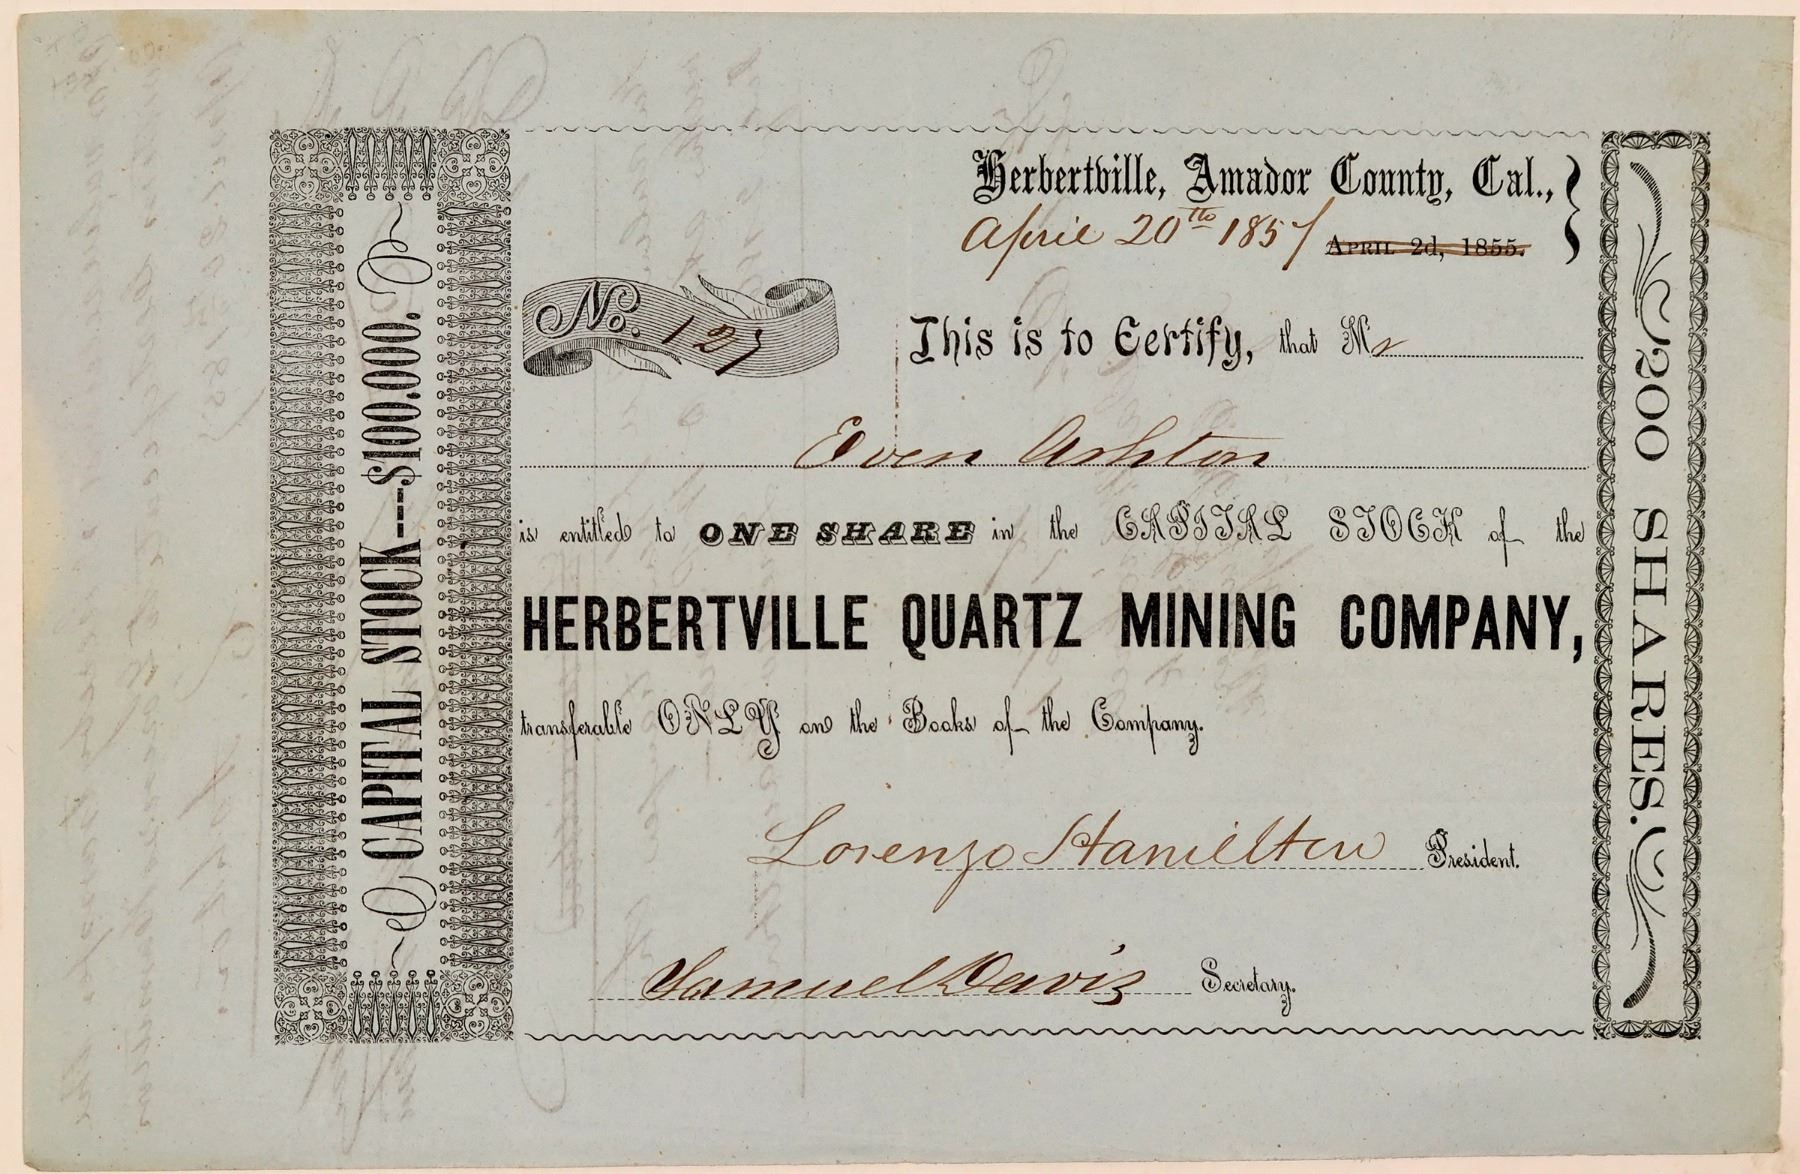 CAPITAL STOCK---$100.000.
Herbertville, Amador County, Cal.,
April 20th 1857 APRIL 2d, 1855.
No. 127
This is to Certify, that Mr
Even Ashton
is entitled to ONE SHARE in the CAPITAL STOCK of the
HERBERTVILLE QUARTZ MINING COMPANY,
transferable ONLY on the Books of the Company.
Lorenzo Hamilton President.
Samuel Davis Secretary.
200 SHARES.